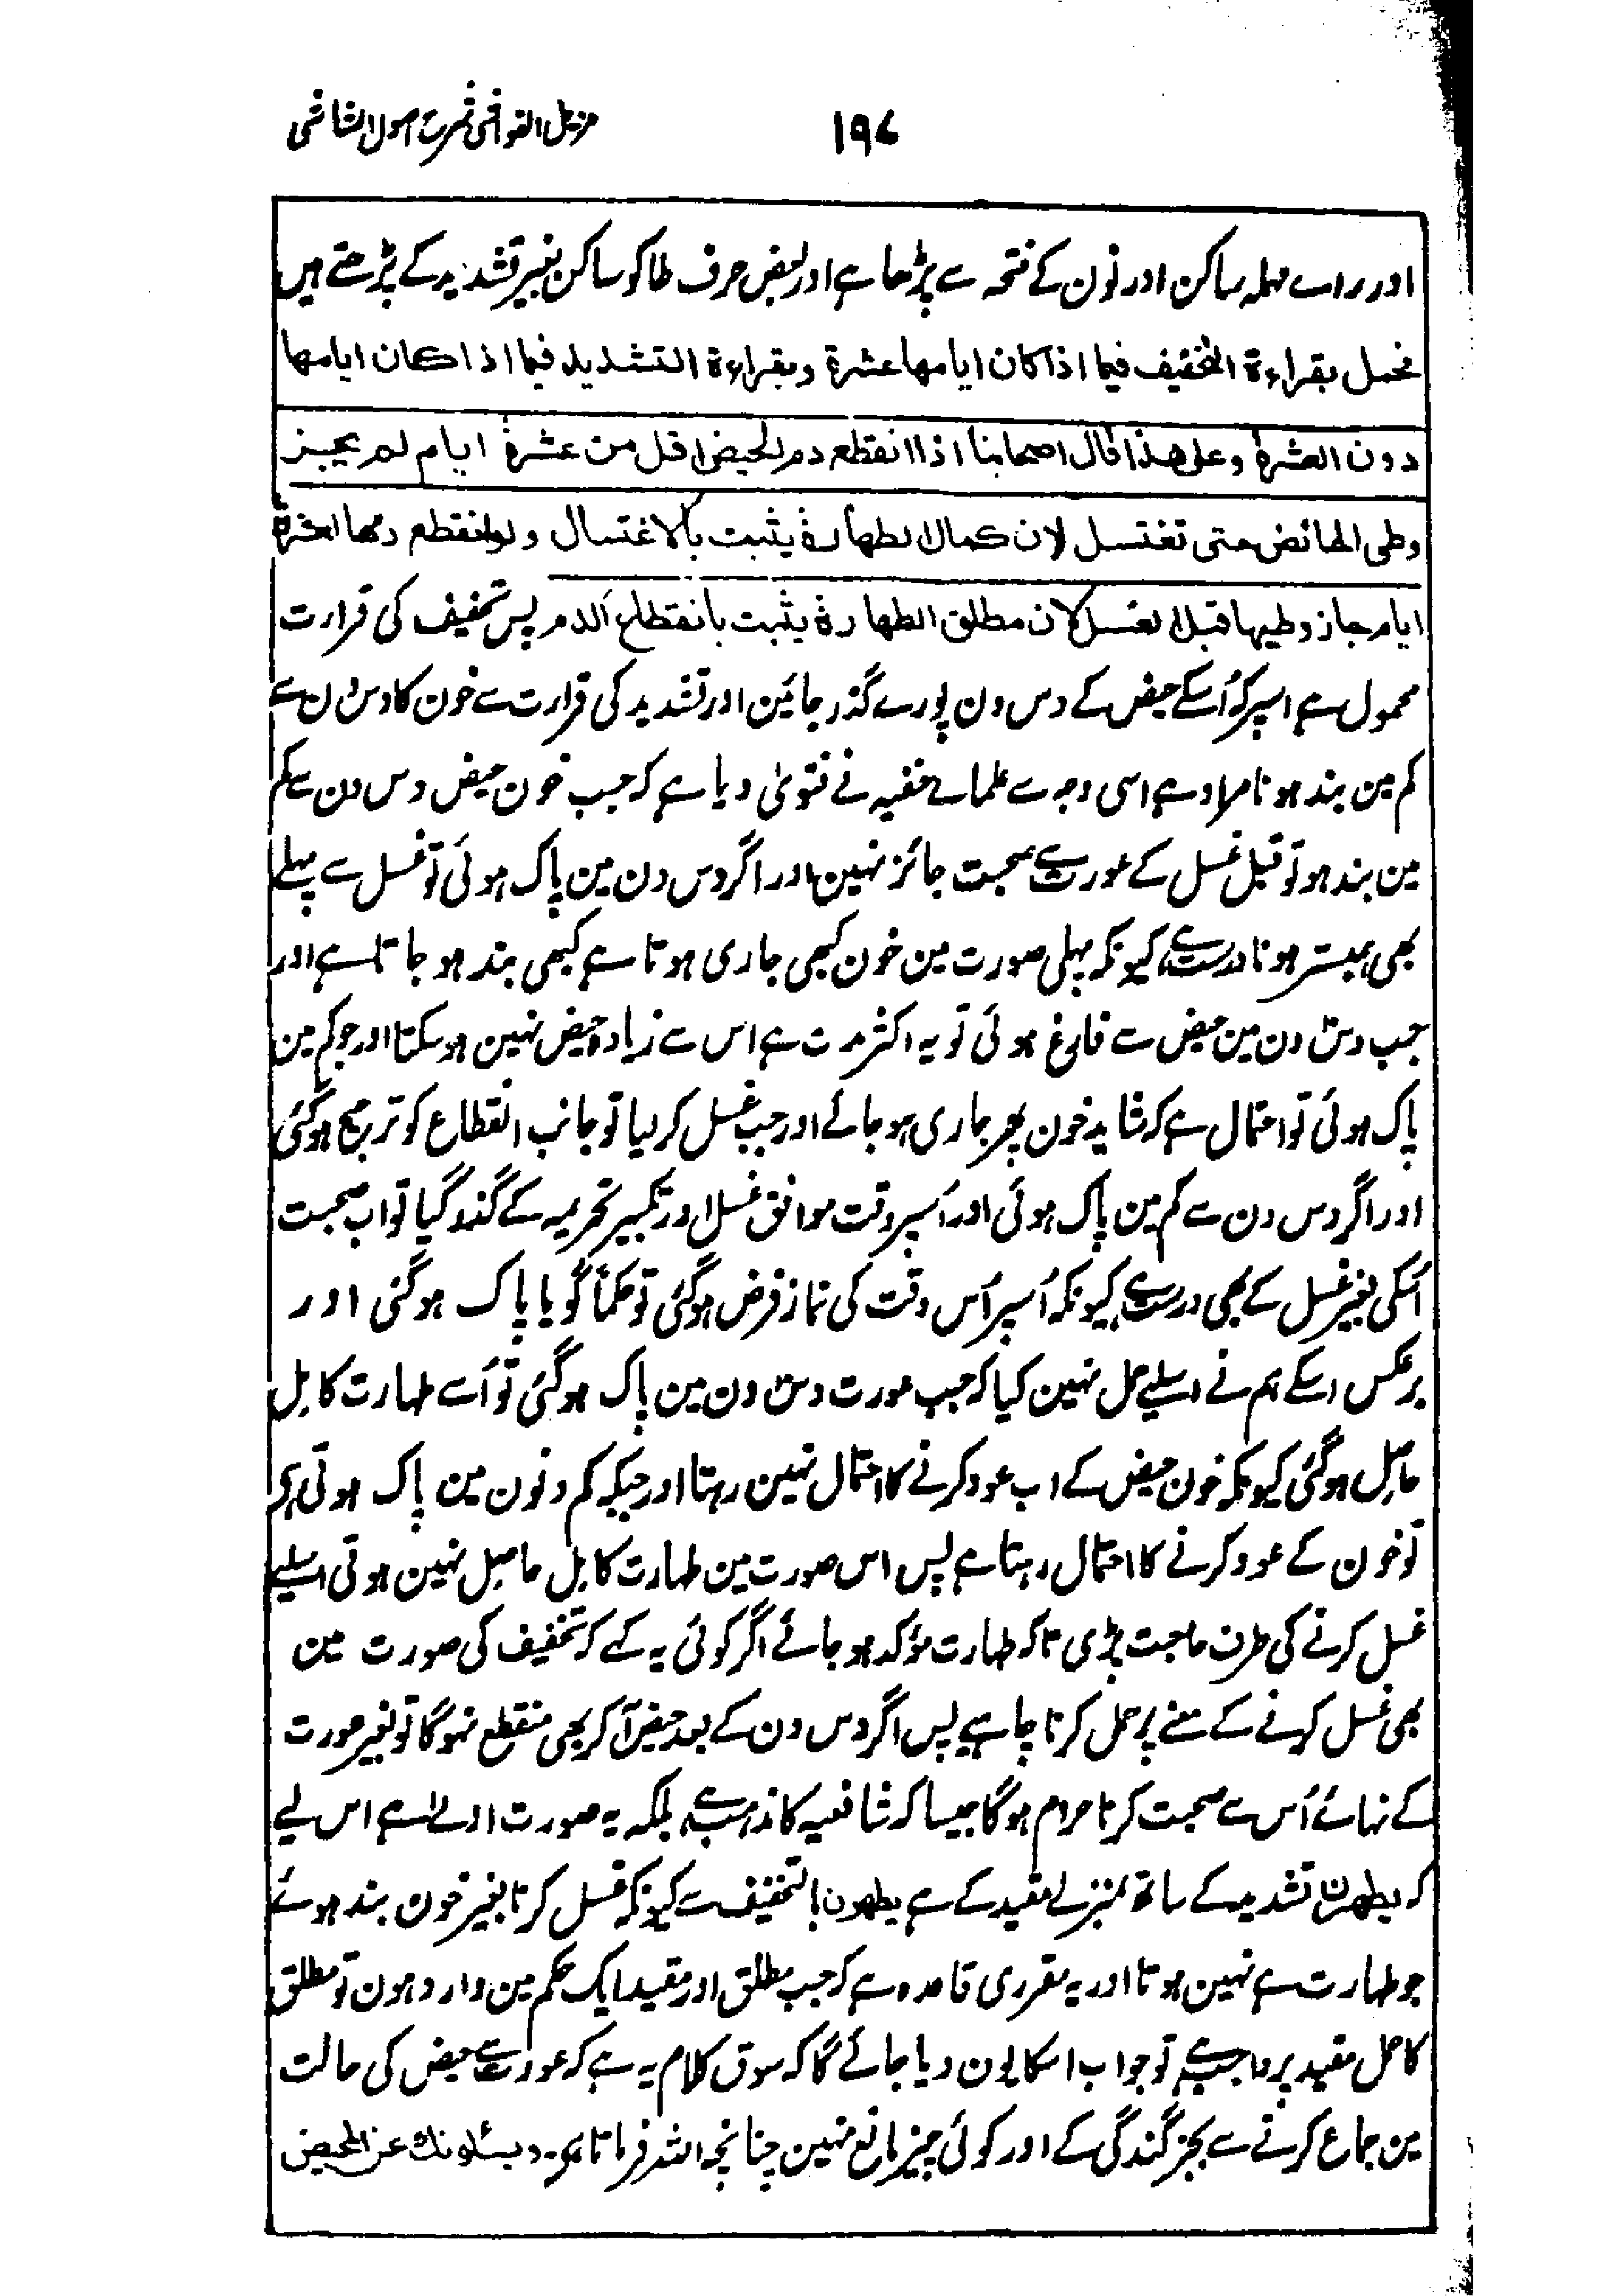 مزیل الغواشی شرح اصول الشاشی
۱۹۷
اور راے مہملہ ساکن اور نون کے فتحہ سے پڑھا ہے اور بعض حرف طا کو ساکن بغیر تشدید کے پڑھتے ہیں
فیحمل بقراءۃ التخفیف فیما اذا کان ایامها عشرۃ وبقراءۃ التشدید فیما اذا کان ایامها
دون العشرۃ وعلی هذا قال اصحابنا اذا انقطع دم الحیض لاقل من عشرۃ ایام لم یجز
وطی الحائض حتی تغتسل لان کمال الطهارۃ یثبت بالاغتسال ولو انقطع دمها لعشرۃ
ایام جاز وطیها قبل الغسل لان مطلق الطهارۃ یثبت بانقطاع الدم پس تخفیف کی قرارت
محمول ہے اسپر کہ اُسکے حیض کے دس دن پورے گذر جائین اور تشدید کی قرارت سے خون کا دس دن سے
کم مین بند ہونا مراد ہے اسی وجہ سے علماے حنفیہ نے فتویٰ دیا ہے کہ جب خون حیض دس دن سے کم
مین بند ہو تو قبل غسل کے عورت سے صحبت جائز نہین اور اگر دس دن مین پاک ہوئی تو غسل سے پہلے
بھی ہمبستر ہونا درست ہے کیونکہ پہلی صورت مین خون کبھی جاری ہوتا ہے کبھی بند ہو جاتا ہے اور
جب دس دن مین حیض سے فارغ ہوئی تو یہ اکثر مدت ہے اس سے زیادہ حیض نہین ہو سکتا اور جو کم مین
پاک ہوئی تو احتمال ہے کہ شاید خون پھر جاری ہو جائے اور جب غسل کر لیا تو جانب انقطاع کو ترجیح ہوگئی
اور اگر دس دن سے کم مین پاک ہوئی اور اُسپر وقت موافق غسل اور تکبیر تحریمہ کے گذر گیا تو اب صحبت
اُسکی بغیر غسل کے بھی درست ہے کیونکہ اُسپر اُس وقت کی نماز فرض ہوگئی تو حکماً گویا پاک ہوگئی اور
برعکس اسکے ہم نے اسلیے حمل نہین کیا کہ جب عورت دس دن مین پاک ہوگئی تو اُسے طہارت کامل
حاصل ہوگئی کیونکہ خون حیض کے اب عود کرنے کا احتمال نہین رہتا اور جبکہ کم دنون مین پاک ہوئی ہے
تو خون کے عود کرنے کا احتمال رہتا ہے پس اس صورت مین طہارت کامل حاصل نہین ہوتی اسلیے
غسل کرنے کی طرف حاجت پڑی تاکہ طہارت مؤکد ہو جائے اگر کوئی یہ کہے کہ تخفیف کی صورت مین
بھی غسل کرنے کے معنے پر حمل کرنا چاہیے پس اگر دس دن کے بعد حیض آکر بھی منقطع نہوگا تو بغیر عورت
کے نہائے اُس سے صحبت کرنا حرام ہوگا جیسا کہ شافعیہ کا مذہب ہے بلکہ یہ صورت اولےٰ ہے اس لیے
کہ یطهرن تشدید کے ساتھ بمنزلے مقید کے ہے یطهرن بالتخفیف سے کیونکہ غسل کرنا بغیر خون بند ہونے
جو طہارت ہے نہین ہوتا اور یہ مقرری قاعدہ ہے کہ جب مطلق اور مقید ایک حکم مین وارد ہون تو مطلق
کا حمل مقید پر واجب ہے تو جواب اسکا یون دیا جائے گا کہ سوق کلام یہ ہے کہ عورت سے حیض کی حالت
مین جماع کرنے سے بجز گندگی کے اور کوئی چیز مانع نہین چنانچہ اللہ فرماتا ہی۔ ویسئلونك عن المحیض